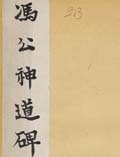 馮公神道碑
913